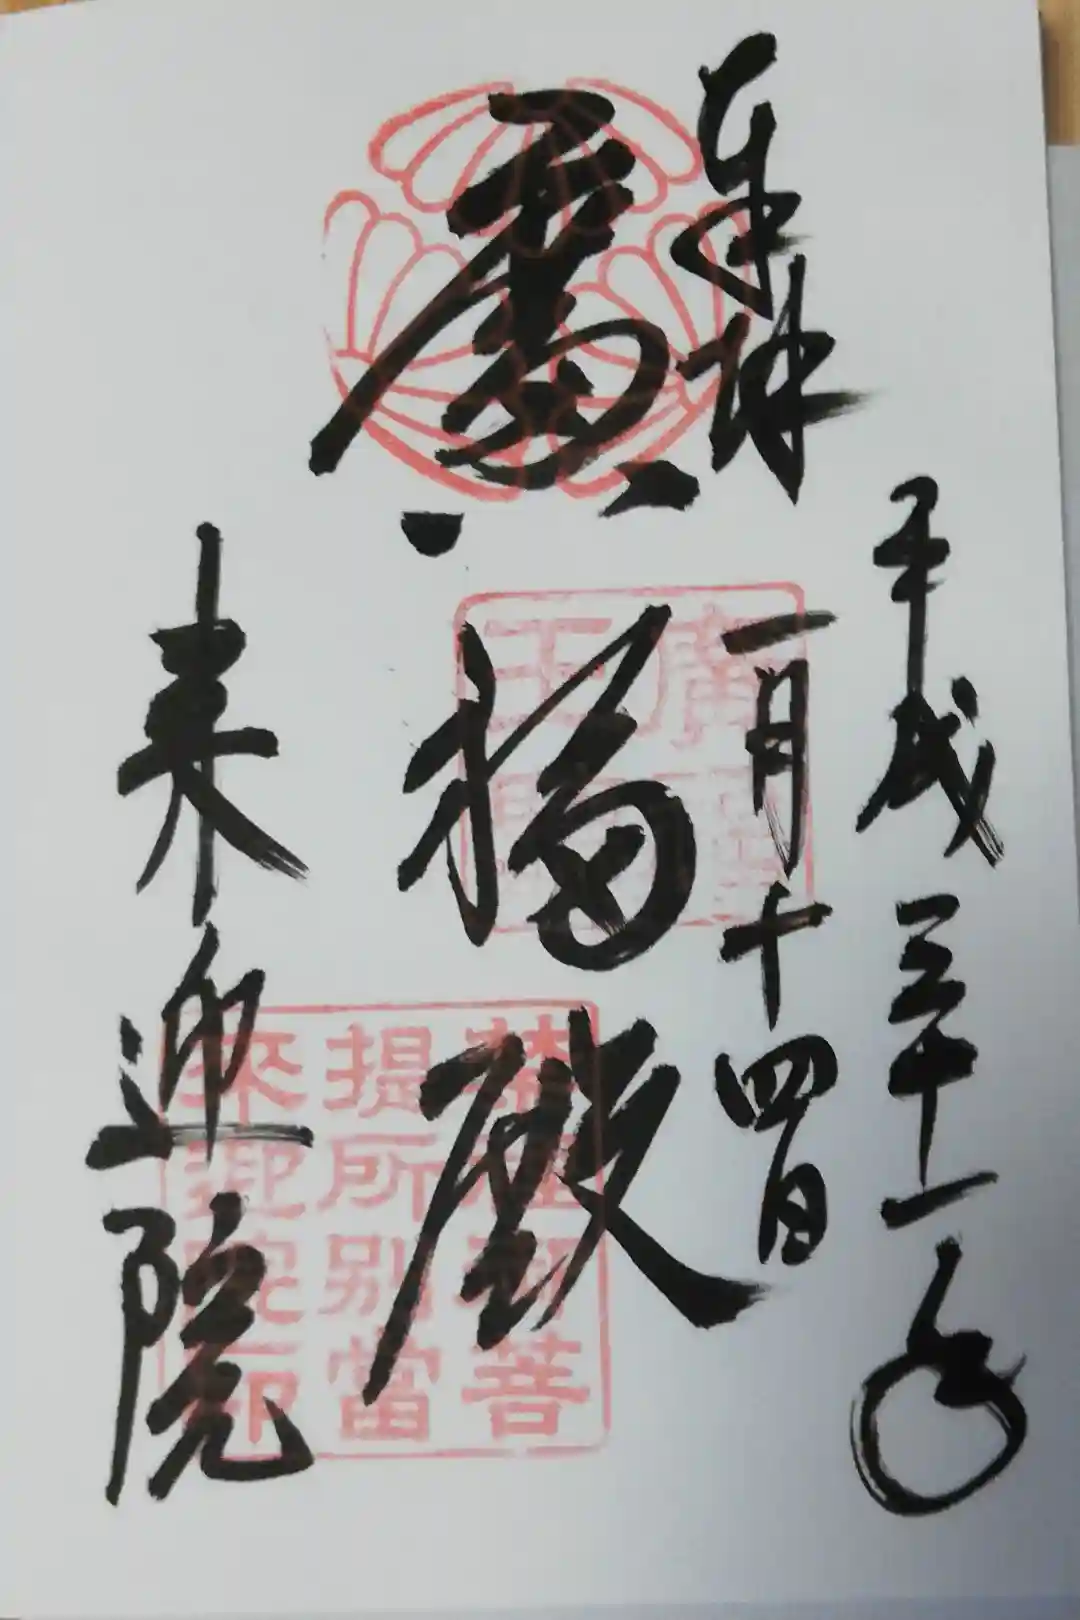 奉拝
平成三十一年
一月十四日
廣福殿
来迎院
菩
提所別當
來迎院